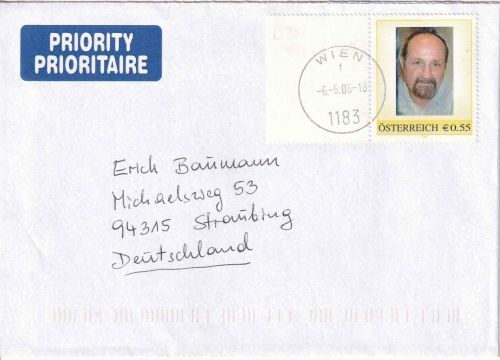 PRIORITY
PRIORITAIRE
WIEN
f
-6.-6.06-18
1183
ÖSTERREICH € 0.55
Erich Baumann
Michaelsweg 53
94315 Straubing
Deutschland